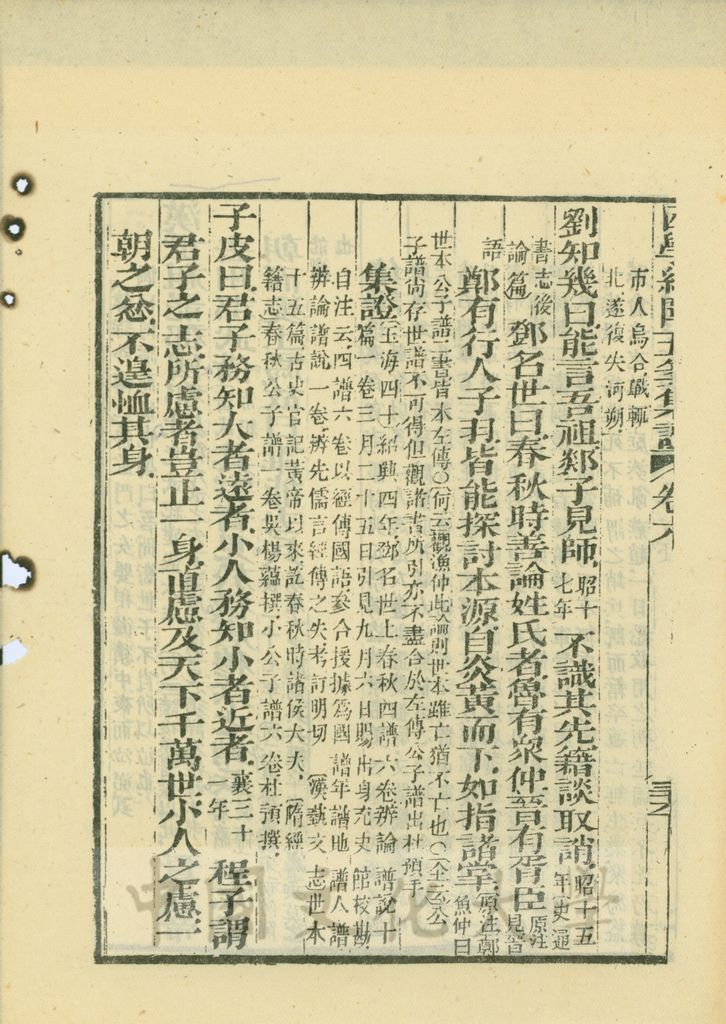 困學紀聞五箋集證 卷六
市人烏合戰輒
北遂復失河朔
劉知幾曰能言吾祖郯子見師昭十七年不識其先籍談取誚昭十五年史通
書志後論篇鄧名世曰春秋時善論姓氏者魯有衆仲晉有胥臣原注見晉
語鄭有行人子羽皆能探討本源自炎黃而下如指諸掌原注鄭漁仲曰
世本公子譜二書皆本左傳○何云觀漁仲此論則世本雖亡猶不亡也○全云公
子譜尚存世譜不可得但觀諸書所引亦不盡合於左傳公子譜出杜預手
集證玉海四十紹興四年鄧名世上春秋四譜六卷辨論譜說十
篇一卷三月二十五日引見九月六日賜出身充史館校勘
自注云四譜六卷以經傳國語參合援據爲國譜年譜地譜人譜
辨論譜說一卷辨先儒言經傳之失考訂明切 漢藝文志世本
十五篇古史官記黃帝以來訖春秋時諸侯大夫 隋經
籍志春秋公子譜一卷吳楊蘊撰小公子譜六卷杜預撰
子皮曰君子務知大者遠者小人務知小者近者襄三十一年程子謂
君子之志所慮者豈止一身直慮及天下千萬世小人之慮一
朝之忿不遑恤其身